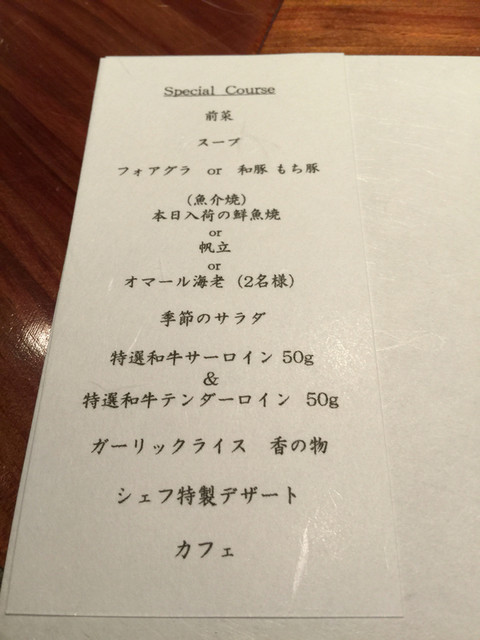 Special Course
前菜
スープ
フォアグラ or 和豚 もち豚
(魚介焼)
本日入荷の鮮魚焼
or
帆立
or
オマール海老 (2名様)
季節のサラダ
特選和牛サーロイン 50g
&
特選和牛テンダーロイン 50g
ガーリックライス 香の物
シェフ特製デザート
カフェ